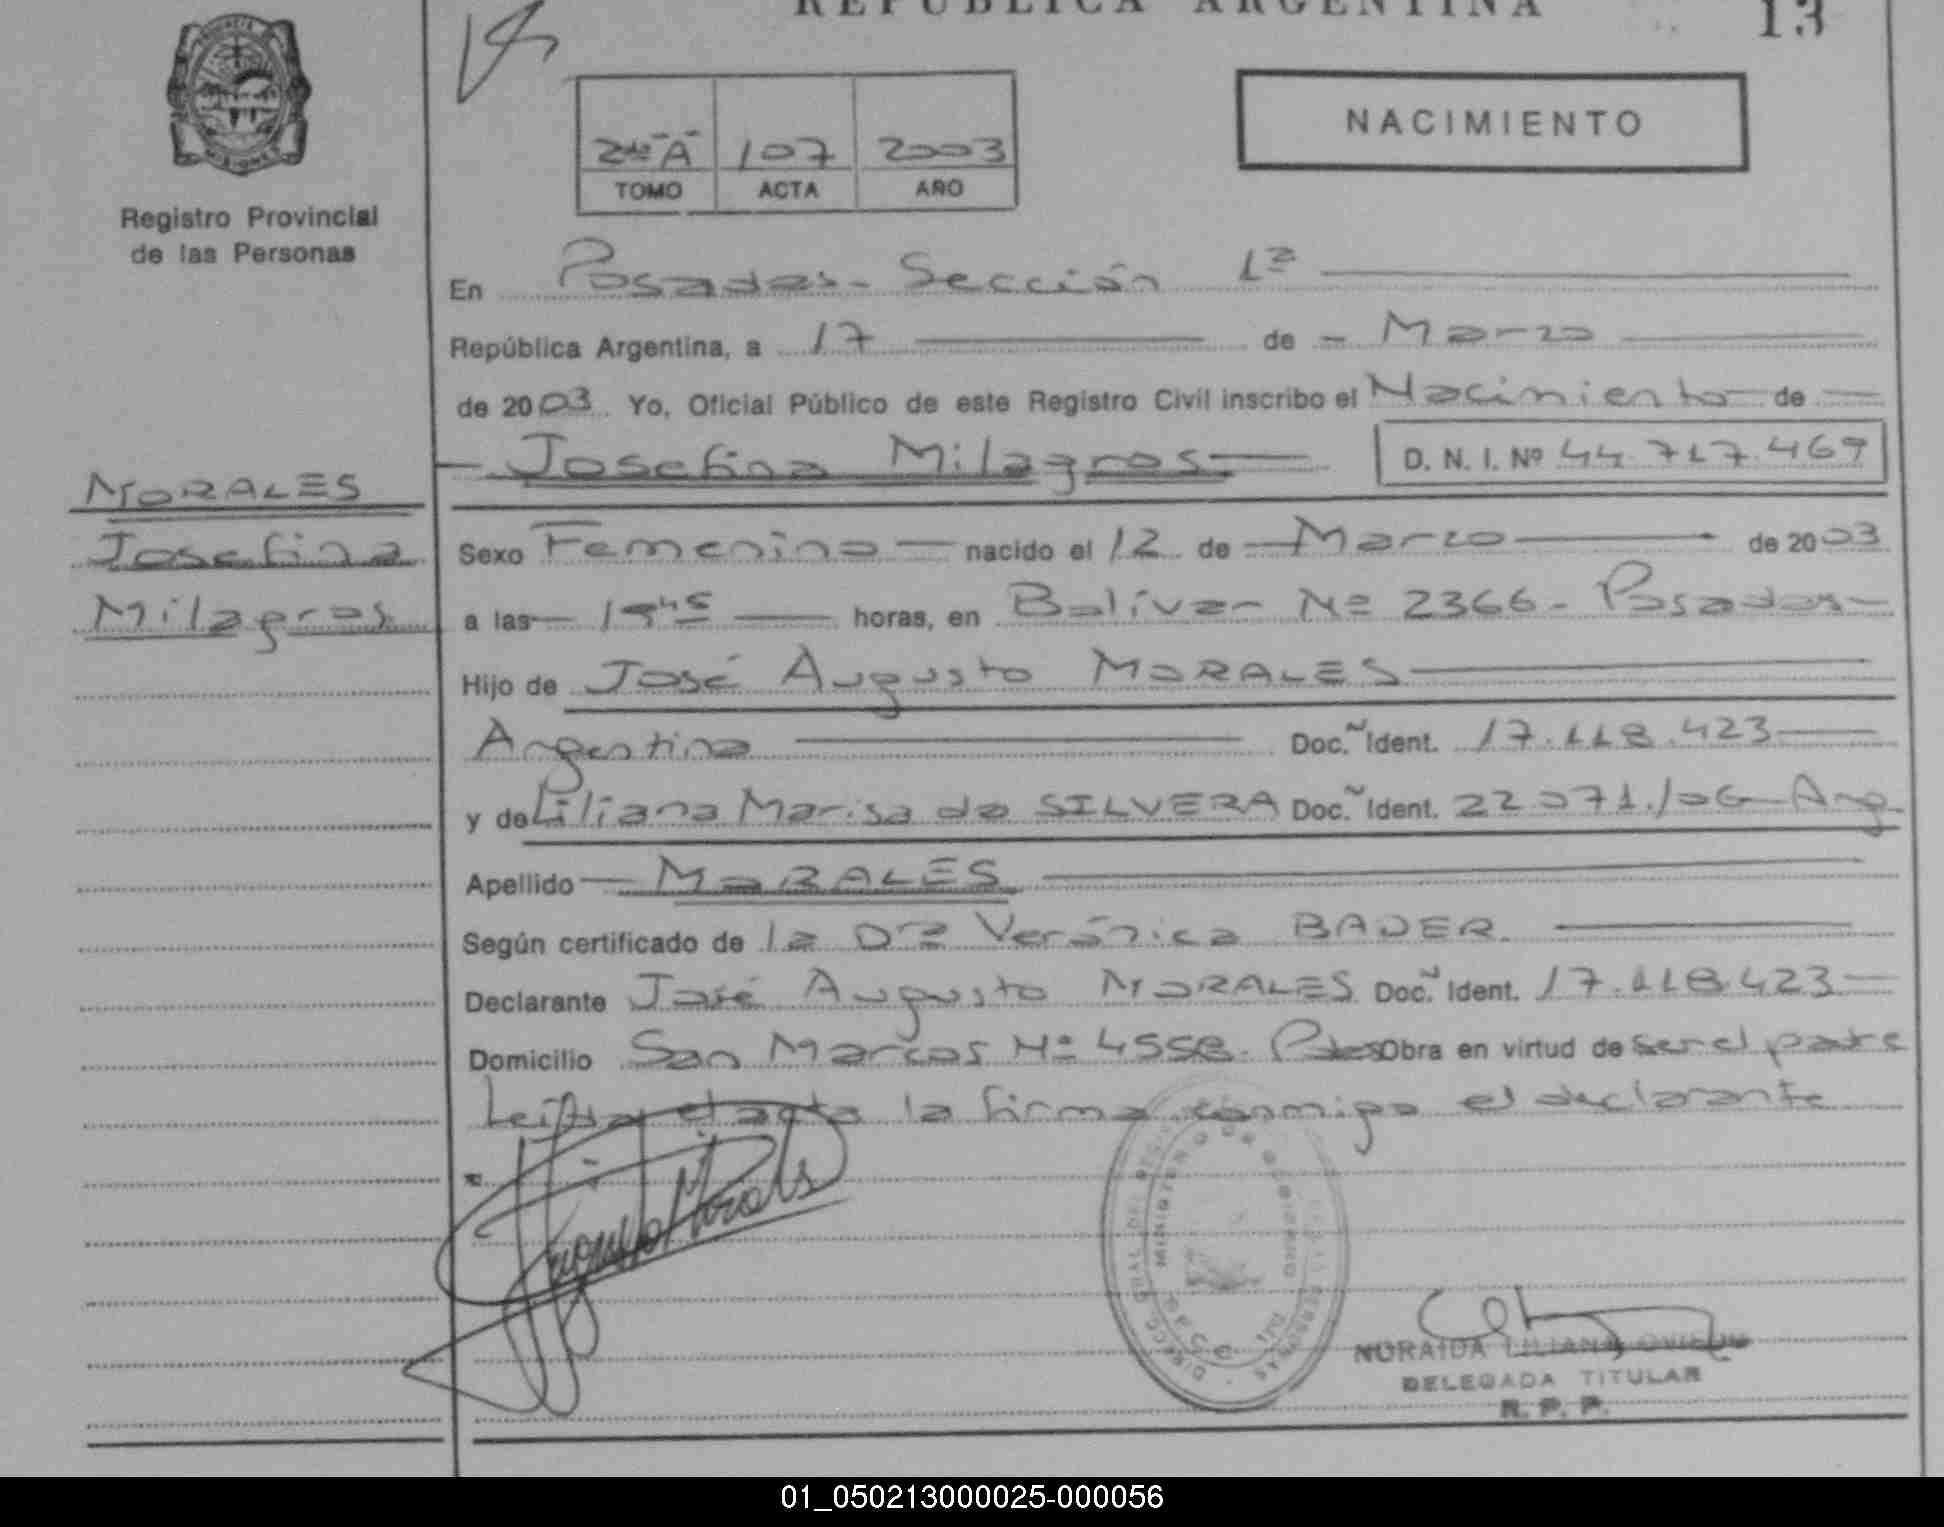 REPUBLICA ARGENTINA 13
PROVINCIA
MISIONES
Registro Provincial
de las Personas
2do "A" 107 2003
TOMO ACTA AÑO
NACIMIENTO
En Posadas - Sección 1ª
República Argentina, a 17 de - Marzo
de 2003. Yo, Oficial Público de este Registro Civil inscribo el Nacimiento de
- Josefina Milagros D. N. I. Nº 44.717.469
MORALES
Josefina
Milagros
Sexo Femenino nacido el 12 de Marzo de 2003
a las horas, en Bolívar Nº 2366 - Posadas -
Hijo de José Augusto MORALES
Argentina Doc. Ident. 17.118.423
y de Liliana Marisa da SILVERA Doc. Ident. 22.071.106 - Arg.
Apellido MORALES
Según certificado de la Dra Verónica BADER.
Declarante José Augusto MORALES Doc. Ident. 17.118.423
Domicilio San Marcos Nº 4558 - Pdas Obra en virtud de ser el padre
Leída el acta la firma conmigo el declarante
Augusto Morales
MINISTERIO DE GOBIERNO
NORAIDA LILIANA OVIEDO
DELEGADA TITULAR
R. P. P.
01_050213000025-000056